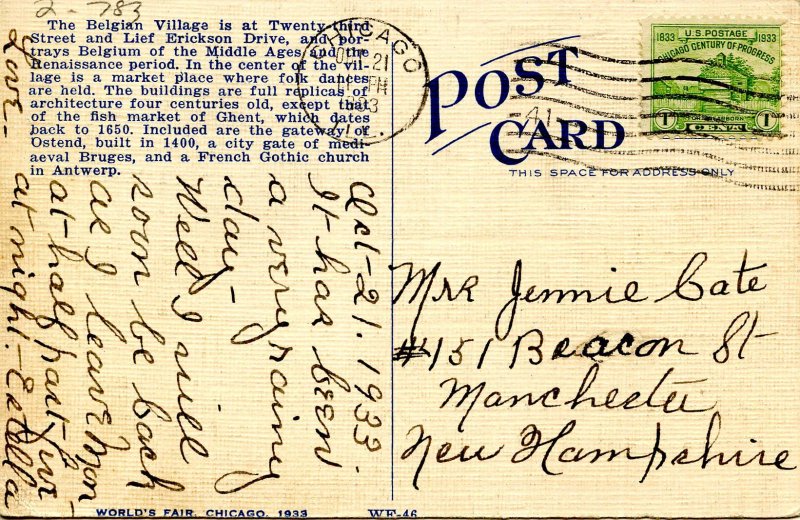 2-783
The Belgian Village is at Twenty-third
Street and Lief Erickson Drive, and por-
trays Belgium of the Middle Ages and the
Renaissance period. In the center of the vil-
lage is a market place where folk dances
are held. The buildings are full replicas of
architecture four centuries old, except that
of the fish market of Ghent, which dates
back to 1650. Included are the gateway of
Ostend, built in 1400, a city gate of medi-
aeval Bruges, and a French Gothic church
in Antwerp.
CHICAGO
OCT 21
PM
ILL.
POST
CARD
THIS SPACE FOR ADDRESS ONLY
U.S. POSTAGE
1833 1933
CHICAGO CENTURY OF PROGRESS
1 CENT 1
Oct-21.1933
It has been
a very rainy
day-
Well I will
soon be back
as I leave Mon-
at half past five-
at night.-Estella
Love-
Mrs Jennie Cate
#451 Beacon St
Manchester
New Hampshire
WORLD'S FAIR, CHICAGO, 1933
WF-46